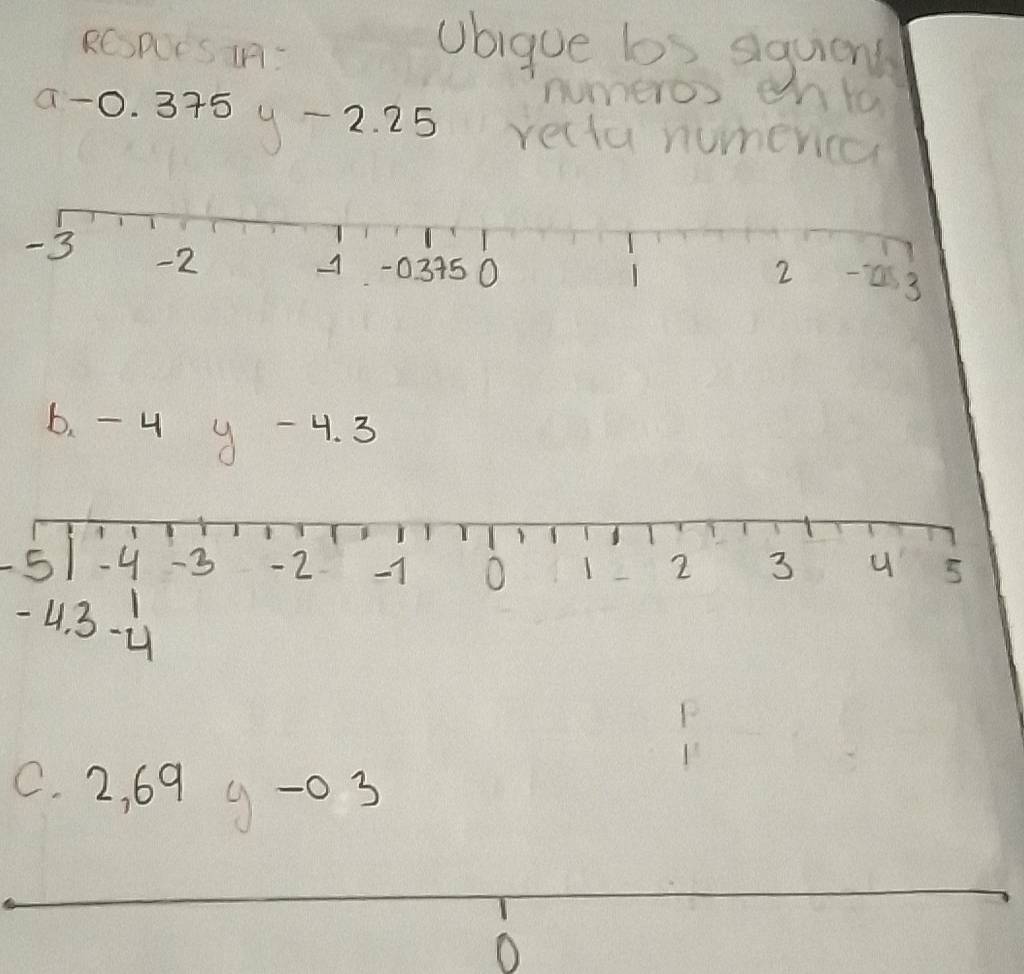 RESPUESTA: Ubique los siguient
numeros en la
a -0.375 y -2.25 recta numerica
-3 -2 -1 -0.375 0 1 2 3
b. -4 y -4.3
-5 -4 -3 -2 -1 0 1 2 3 4 5
-4.3 -4
C. 2,69 y -0.3
0